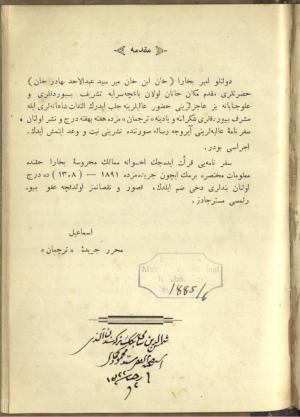 مقدمه
دولتلو امیر بخارا (خان ابن خان میر سید عبدالاحد بهادر خان)
حضرتلری مقدم مکان خانان اولان باغچه‌سرایه تشریف بیوردقلری و
بز عاجزلرینی حضور عالیلرینه جلب ایدرك التفات شاهانه‌لری ایله
مشرف بیوردقلری شکرانه و یادینه «ترجمان» مزده هفته بهفته درج و نشر اولنان
سفرنامهٔ عالیه‌لرینی آیروجه رساله صورتنده نشرینی نیت و وعد ایتمش ایدك.
اجراسی بودر.
سفر نامه‌یی قرأت ایده‌جك اخوانه ممالك محروسهٔ بخارا حقنده
معلومات مختصره برمك ایچون جریده‌مزده ۱۸۹۱ — (۱۳۰۸) ده درج
اولنان بندلری دخی ضم ایدك. قصور و نقصانمز اولدقچه عفو بیو-
رلمسی مسترجادر.
اسماعیل
محرر جریدهٔ «ترجمان»
1885/6